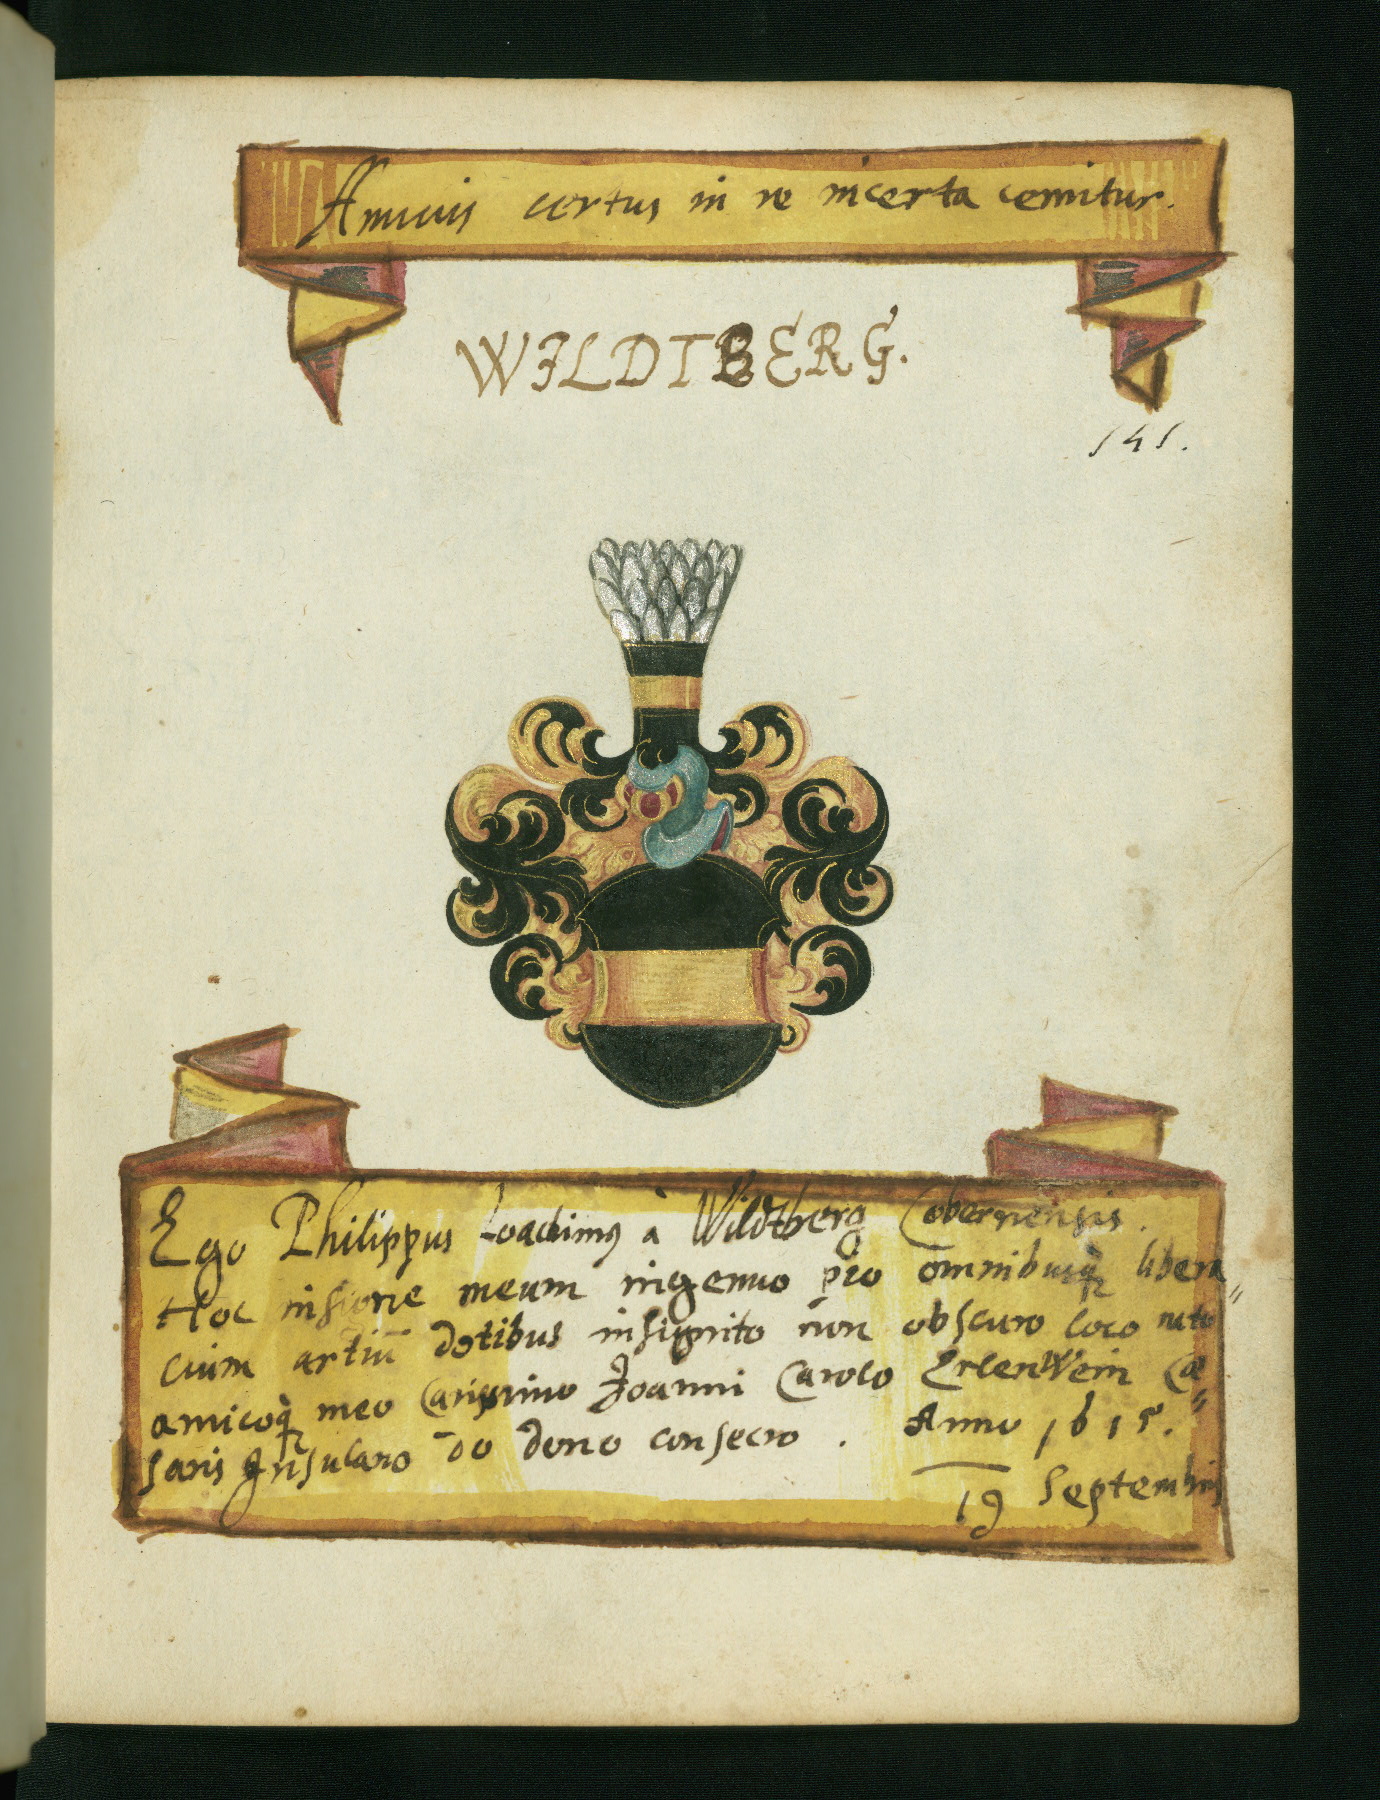 Amicus certus in re incerta cernitur.
WILDTBERG.
141.
Ego Philippus Ioachimus à Wildtberg Cobernensis.
Hoc insigne meum ingenuo pio omnibusq̀ libera„
lium artiū dotibus insignito non obscuro loco nato
amicoq̀ meo Carissimo Joanni Carolo ErlenWein Cæ„
saris Insulano do dono consecro. Anno 1615.
19 Septembris